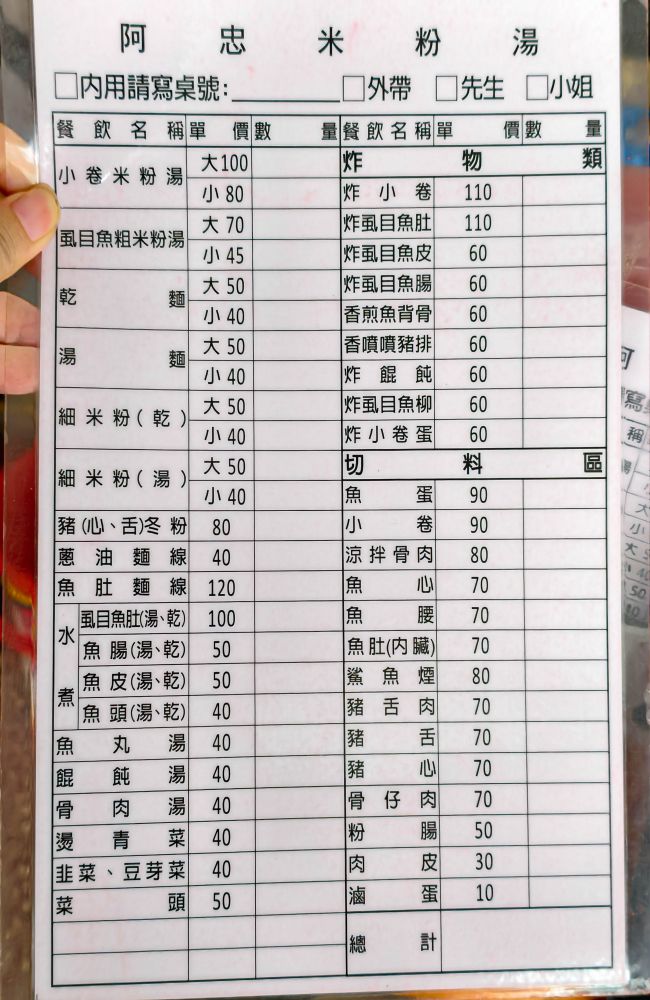 阿忠米粉湯
□內用請寫桌號:________ □外帶 □先生 □小姐
餐飲名稱 單價 數量
小卷米粉湯 大100
小80
虱目魚粗米粉湯 大70
小45
乾麵 大50
小40
湯麵 大50
小40
細米粉(乾) 大50
小40
細米粉(湯) 大50
小40
豬(心、舌)冬粉 80
蔥油麵線 40
魚肚麵線 120
水煮
虱目魚肚(湯、乾) 100
魚腸(湯、乾) 50
魚皮(湯、乾) 50
魚頭(湯、乾) 40
魚丸湯 40
餛飩湯 40
骨肉湯 40
燙青菜 40
韭菜、豆芽菜 40
菜頭 50
餐飲名稱 單價 數量
炸物類
炸小卷 110
炸虱目魚肚 110
炸虱目魚皮 60
炸虱目魚腸 60
香煎魚背骨 60
香噴噴豬排 60
炸餛飩 60
炸虱目魚柳 60
炸小卷蛋 60
切料區
魚蛋 90
小卷 90
涼拌骨肉 80
魚心 70
魚腰 70
魚肚(內臟) 70
鯊魚煙 80
豬舌肉 70
豬舌 70
豬心 70
骨仔肉 70
粉腸 50
肉皮 30
滷蛋 10
總計